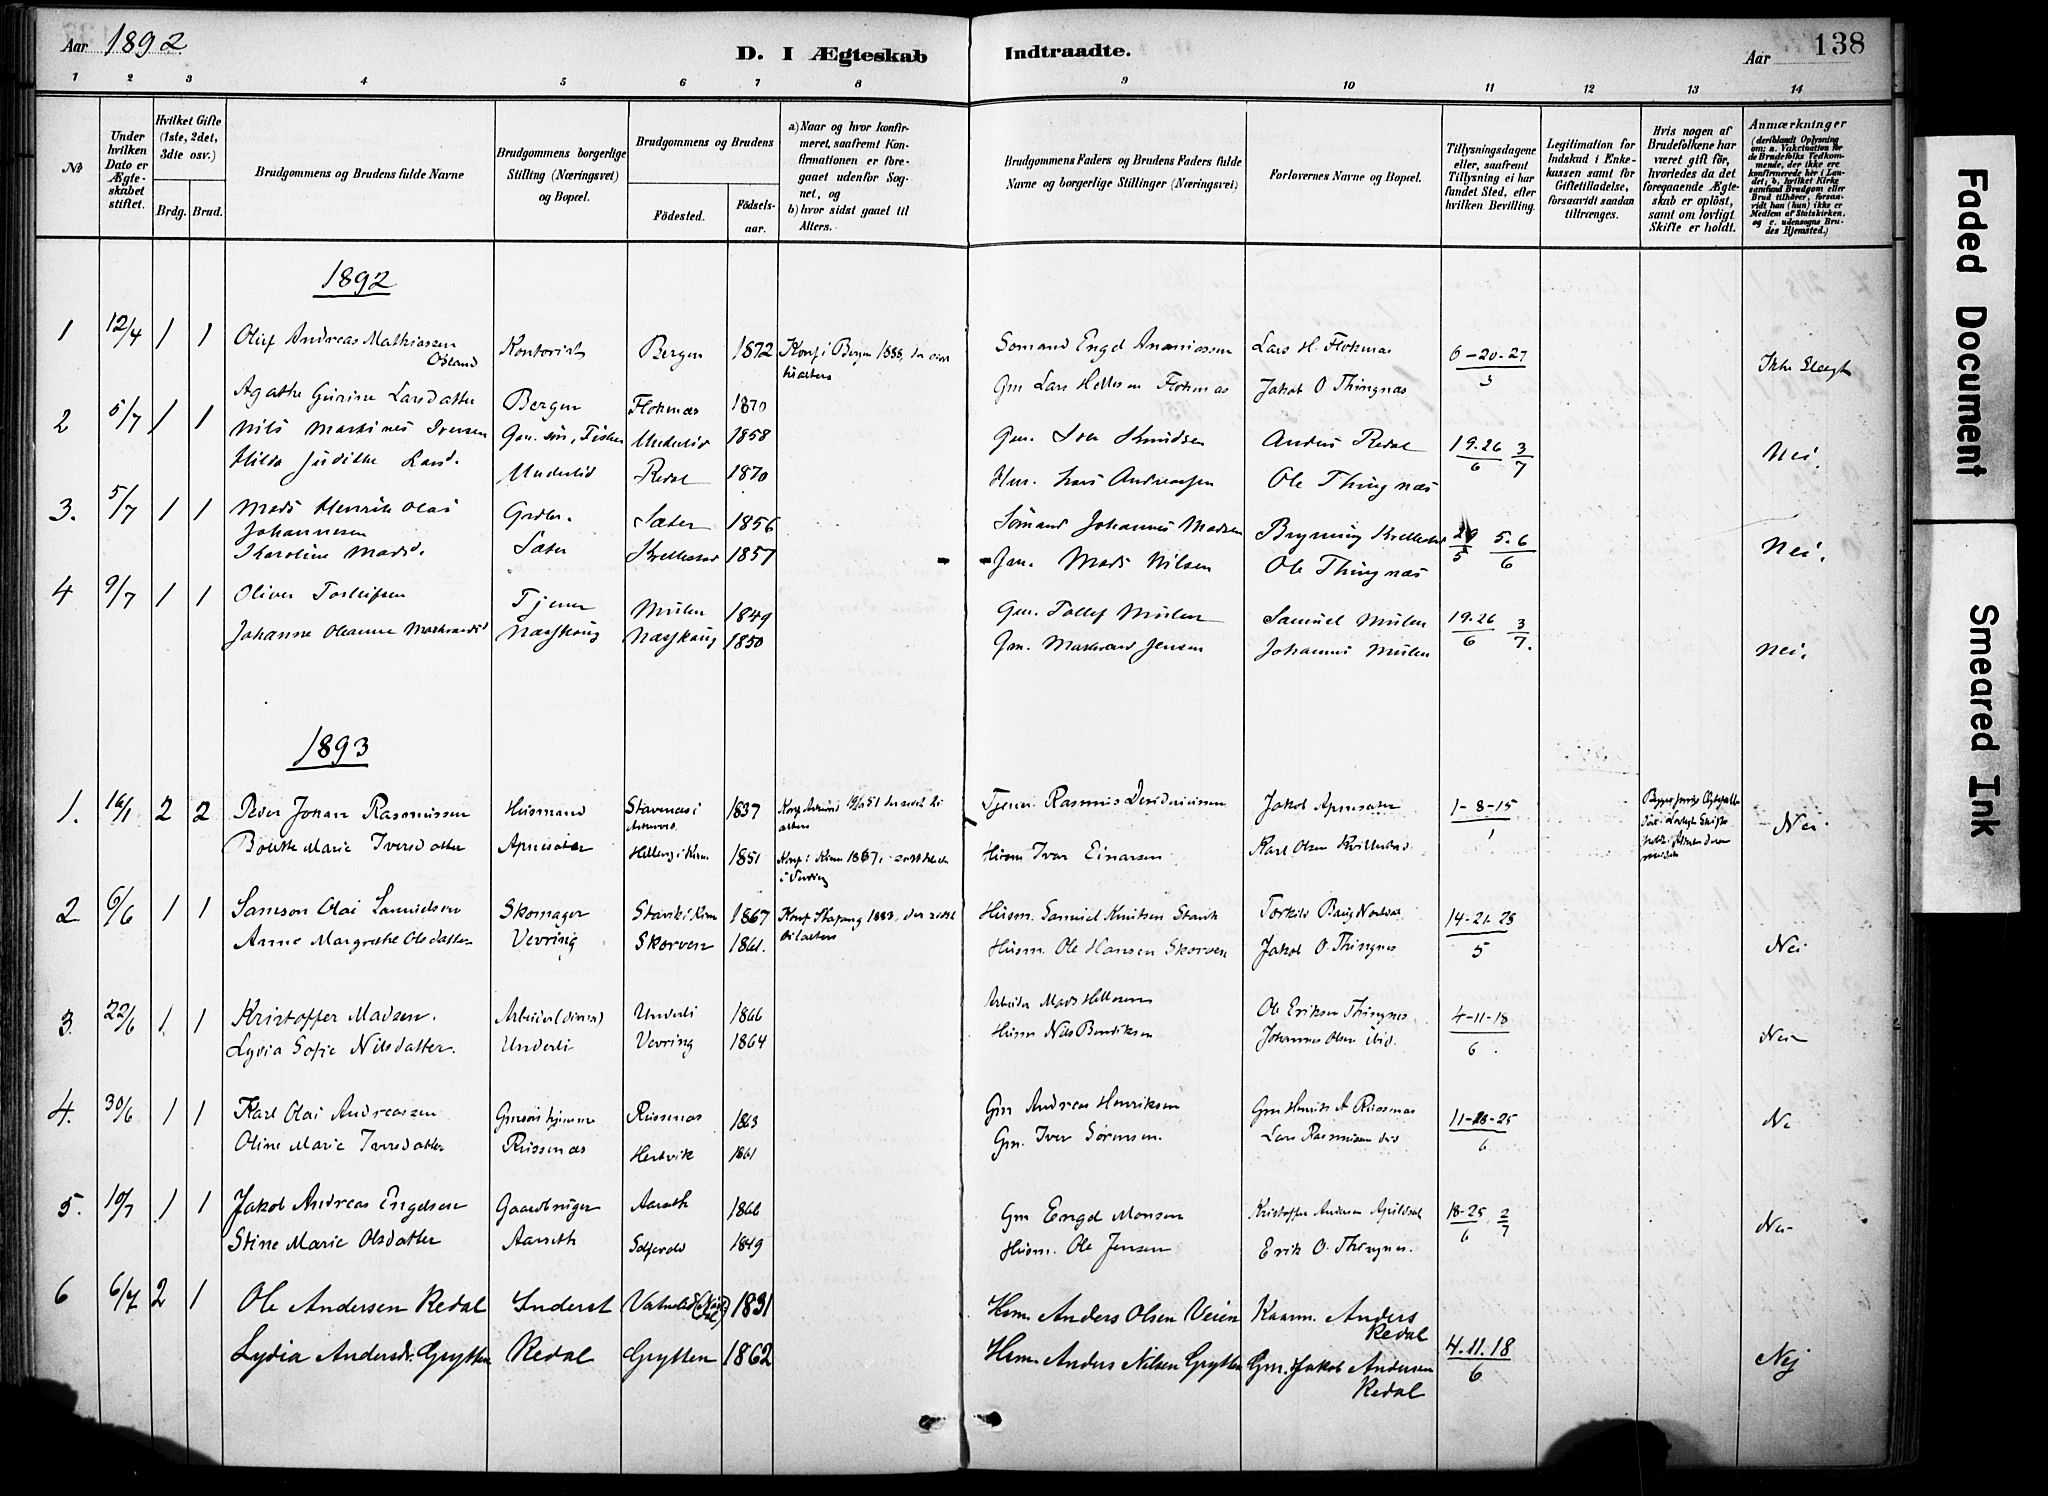 Aar 1892
D. I Ægteskab Indtraadte.
Aar
138
1 2 3 4 5 6 7 8 9 10 11 12 13 14
No
Under hvilken Dato er Ægteskabet stiftet.
Hvilket Gifte (1ste, 2det, 3die osv.)
Brdg. Brud.
Brudgommens og Brudens fulde Navne
Brudgommens borgerlige Stilling (Næringsvei) og Bopæl.
Brudgommens og Brudens
Födested. Födsels-aar.
a) Naar og hvor konfirmeret, saafremt Konfirmationen er foregaaet udenfor Sognet, og
b) hvor sidst gaaet til Alters.
Brudgommens Faders og Brudens Faders fulde Navne og borgerlige Stillinger (Næringsvei)
Forlovernes Navne og Bopæl.
Tillysningsdagene eller, saafremt Tillysning ei har fundet Sted, efter hvilken Bevilling.
Legitimation for Indskud i Enkekassen samt for Giftetilladelse, forsaavidt saadan tiltrænges.
Hvis nogen af Brudefolkene har været gift för, hvorledes da det foregaaende Ægteskab er oplöst, samt om lovligt Skifte er holdt.
Anmærkninger
(deriblandt Oplysning om: a. Vakcination for de Brudefolks Vedkommende, der ikke ere konfirmerede her i Landet; b. hvilket Kirkesamfund Brudgom eller Brud tilhörer, forsaavidt han (hun) ikke er Medlem af Statskirken, og c. udensogns Brudes Hjemsted.)
1892
1 12/4 1 1 Oluf Andreas Mathiassen Kontorist Bergen 1872 Konf i Bergen 1888, Ananiassen Lars H. Flokenæs 6-20-27/3 Ikke Slægt
Agathe Gurine Larsdatter Bergen Flokenæs 1870 Gm Lars Flokenæs Jakob O Thingnæs
2 5/7 1 1 Nils Martines Iversen Fisker Underlid 1858 Gm. Iver Knudsen Anders Redal 19.26/6 3/7 Nei.
Hilda Judithe Larsd. Underlid Redal 1870 Lars Andreassen Ole Thingnæs
3. 5/7 1 1 Mads Henrik Olai Johannesen Sæter 1856 Sømand Johannes Madsen Bryning 29/5 5.6/6 Nei.
Karoline Madsd. Sæter 1857 Gm. Mads Nilsen Ole Thingnæs
4 9/7 1 1 Oliver Torleifsen Tjener Mulen 1849 Gm. Tollef Mulen Samuel Mulen 19.26/6 3/7.
Johanne Oleanne Næsskaug Næsskaug 1850 Gm. Jensen Johannes Mulen Nei.
1893
1. 16/1 2 2 Peder Johan Rasmussen Husmand Stavenæs i 1837 Tjener Rasmus Jakob Apnesæter 1-8-15/1 Nei
Marie Iversdatter Apnesæter 1851 Konf i Kinn 1867, Husm Ivar Einarsen Karl Olsen
2 6/6 1 1 Samson Olai Samuelsen Skomager i Kinn 1867 Konf 1883, der sidst til alters Husm. Samuel Knutsen Torkild 14-21-28/5
Anne Margrethe Olsdatter Vevring Skorven 1861. Husm. Ole Hansen Skorven Jakob O. Thingnes Nei
3. 22/6 1 1 Kristoffer Madsen. Arbeider Underli 1866 Arbeider Mads Ole Eriksen Thingnes 4-11-18/6. Nei
Lydia Sofie Nilsdatter. Underli Vevring 1864 Husm Nils Bendiksen Johannes Olsen ibid.
4. 30/6 1 1 Karl Olai Andreassen Russenæs 1863 Gm Andreas Henriksen Gm Henrik A Russenæs 11-18-25/6 Nei
Oline Marie Iversdatter Russenæs Hestvik 1861 Gm. Iver Sørensen. Lars Rasmussen ibid
5. 10/7 1 1 Jakob Andreas Engelsen Gaardbruger Aaseth 1866 Gm Engel Monsen Kristoffer Andersen 18-25/6 2/7 Nei
Stine Marie Olsdatter Aaseth 1849 Husm. Ole Jensen Erik O. Thingnes.
6 6/7 2 1 Ole Andersen Redal Inderst 1831 Hsm. Anders Olsen Veien Kaarm. Anders Redal 4.11.18/6
Lydia Andersdr. Grytten Redal Grytten 1862 Hsm. Anders Nilsen Grytten Gm. Jakob Andersen Redal Nej
Faded Document
Smeared Ink